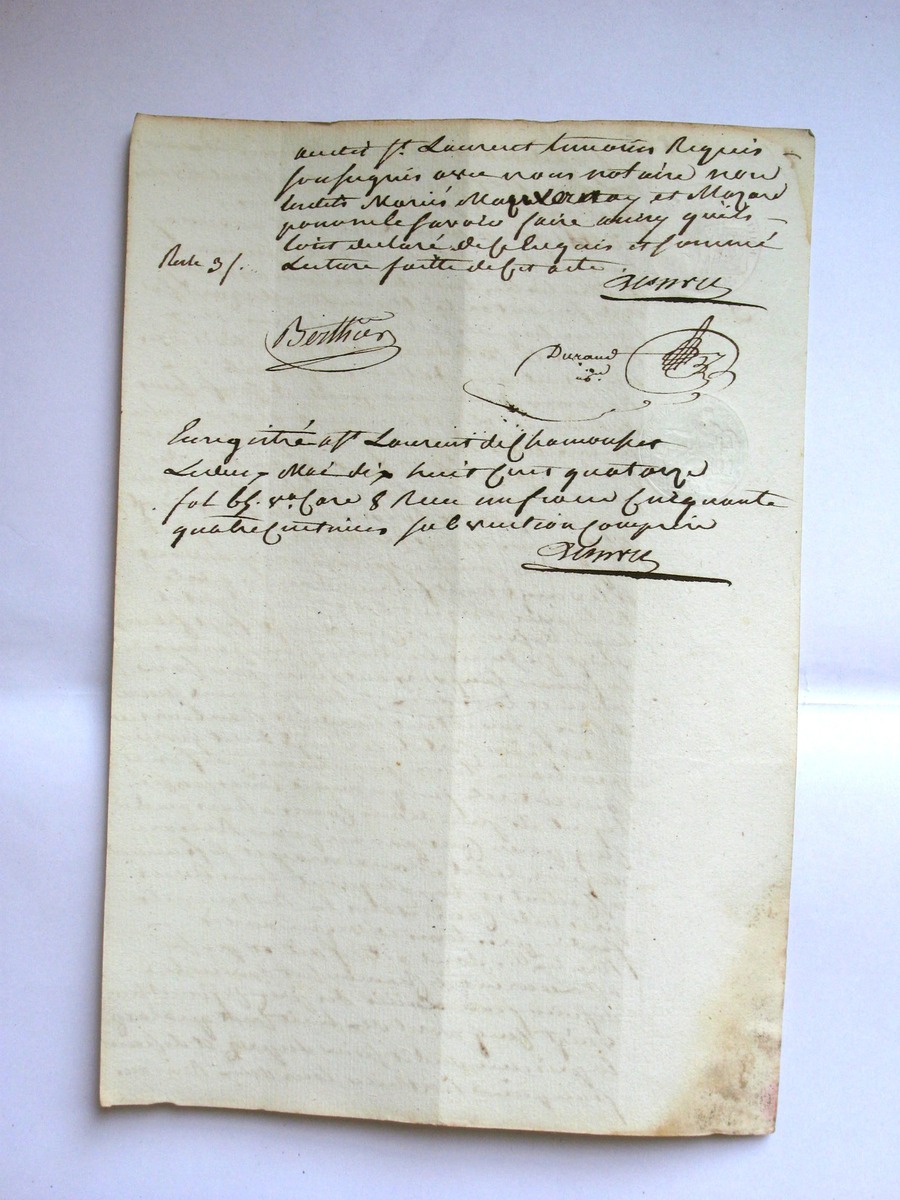 audit St. Laurent témoins Requis
soussignés avec nous notaire non
lesdits Mariés Maquvernay et Mozard
pour ne le savoir faire ainsy quils
lont declaré de ce Requis et sommé
Reste 3 f. Lecture faitte de Cet acte
Berthier
Durand
Enregistré a St Laurent de Chamousset
Le deux Mai dix huit Cent quatorze
fol 65. vo. Case 8 Recu un franc Cinquante
quatre Centimes subvention Comprise